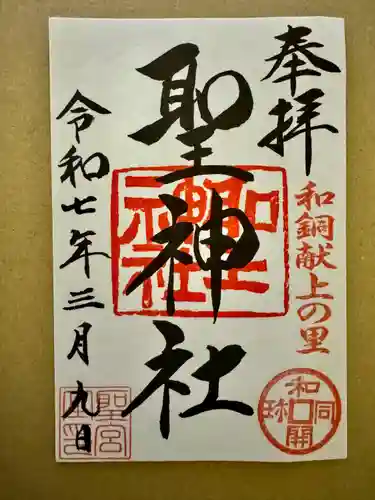 奉拝
和銅献上の里
和同開珎
聖神社
令和七年三月九日